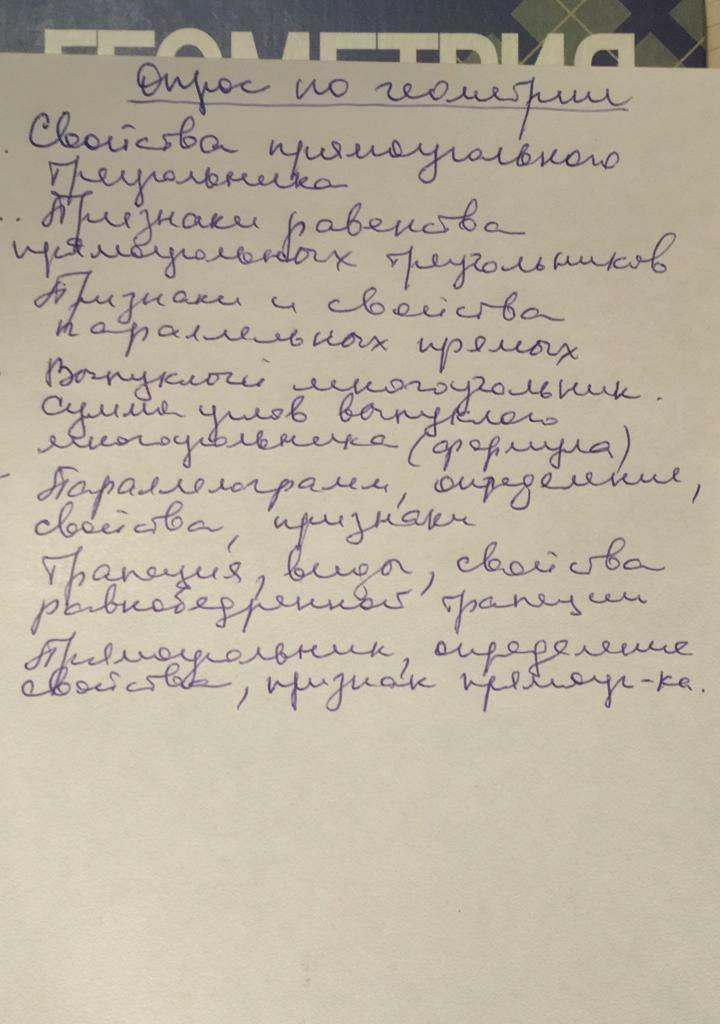 ГЕОМЕТРИЯ
Опрос по геометрии
Свойства прямоугольного
треугольника
Признаки равенства
прямоугольных треугольников
Признаки и свойства
параллельных прямых
Выпуклый многоугольник.
Сумма углов выпуклого
многоугольника (формула)
Параллелограмм, определение,
свойства, признаки
Трапеция, виды, свойства
равнобедренной трапеции
Прямоугольник, определение
свойства, признак прямоуг-ка.